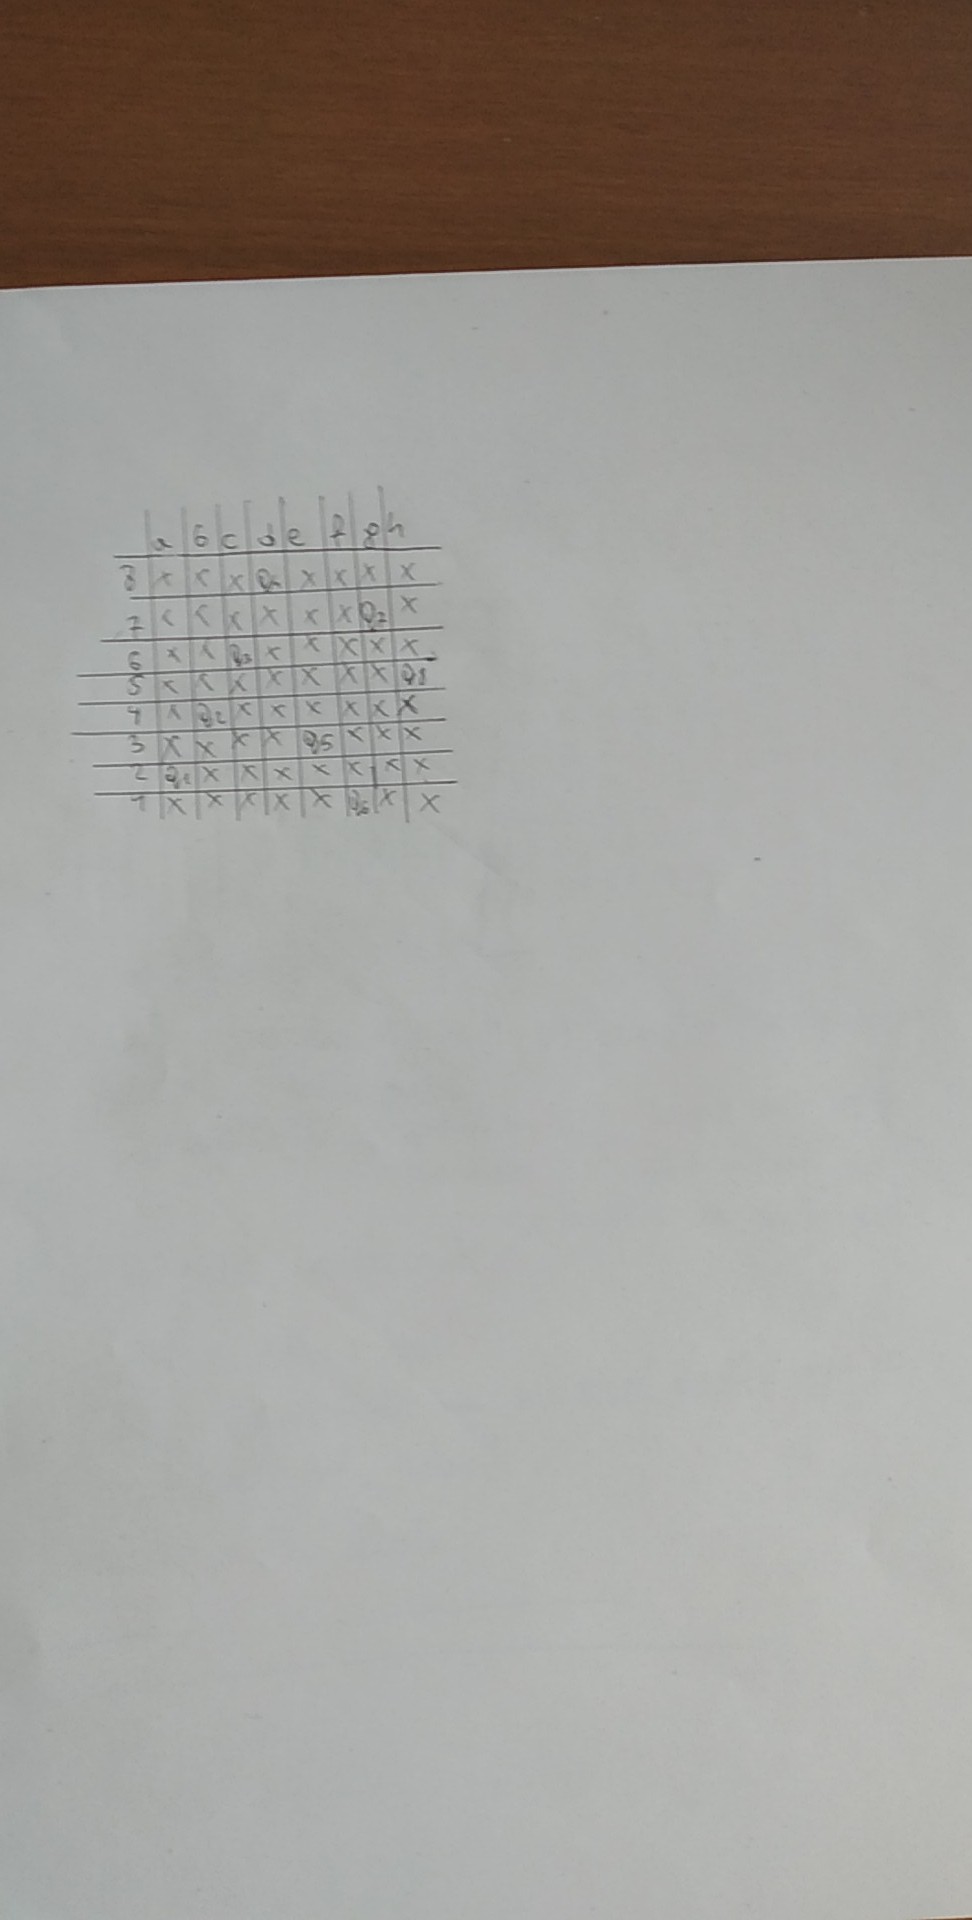 a b c d e f g h
8 x x x Q4 x x x x
7 x x x x x x Q7 x
6 x x Q3 x x x x x
5 x x x x x x x Q8
4 x Q2 x x x x x x
3 x x x x Q5 x x x
2 Q1 x x x x x x x
1 x x x x x Q6 x x